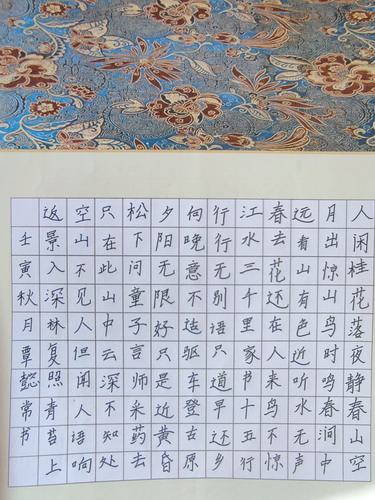 人闲桂花落夜静春山空
月出惊山鸟时鸣春涧中
远看山有色近听水无声
春去花还在人来鸟不惊
江水三千里家书十五行
行行无别语只道早还乡
向晚意不适驱车登古原
夕阳无限好只是近黄昏
松下问童子言师采药去
只在此山中云深不知处
空山不见人但闻人语响
返景入深林复照青苔上
壬寅秋月覃懿常书